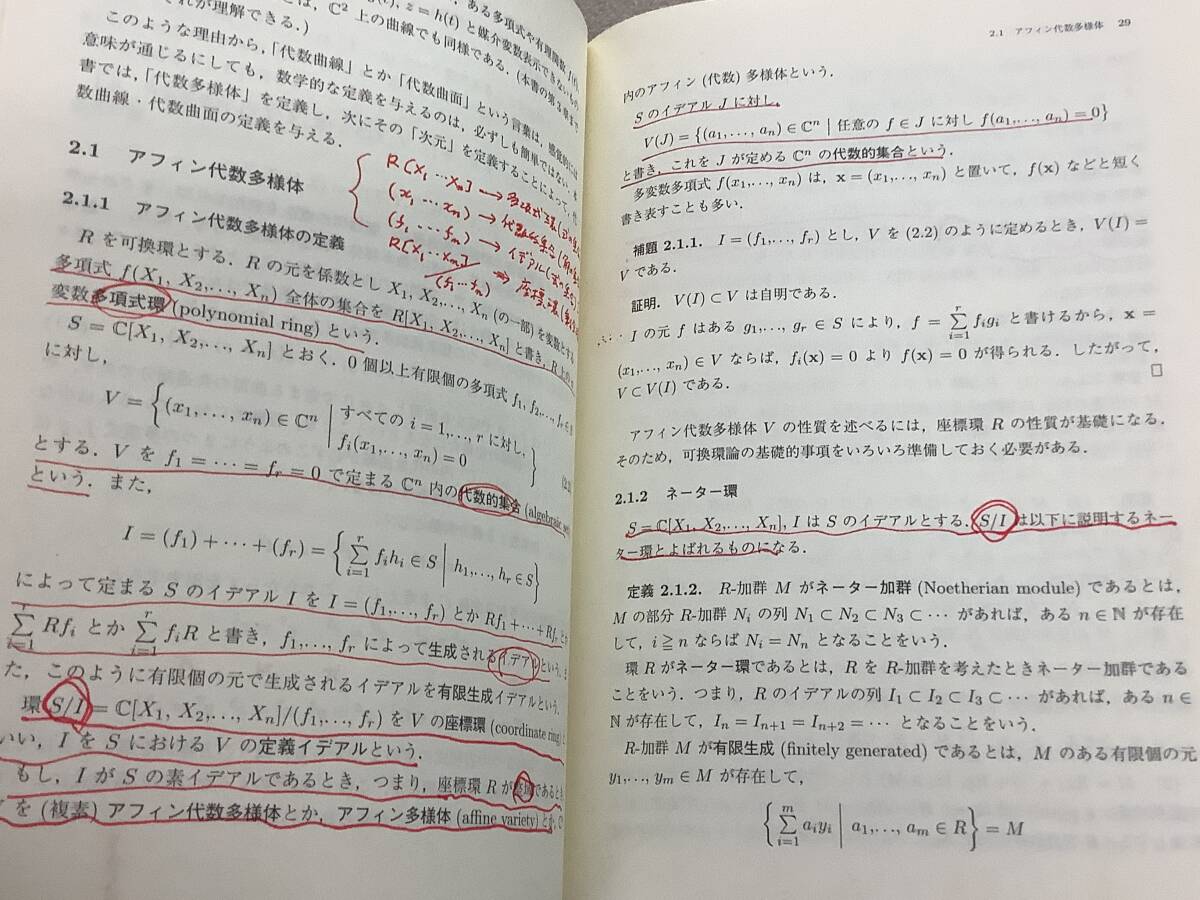 ある多項式や有理関数 f(t),
z = h(t) と媒介変数表示できないもの
それが理解できる.)
は, ℂ² 上の曲線でも同様である. (本書の第
このような理由から,「代数曲線」とか「代数曲面」という言葉は, 感覚的には
意味が通じるにしても, 数学的な定義を与えるのは, 必ずしも簡単ではない.
書では,「代数多様体」を定義し, 次にその「次元」を定義することによって, 代
数曲線・代数曲面の定義を与える.
2.1 アフィン代数多様体
R[X₁ … Xₙ] → 多項式環
(x₁ … xₙ) → 代数的集合
(f₁ … fₘ) → イデアル
R[X₁ … Xₙ]/(f₁ … fₙ) → 座標環
2.1.1 アフィン代数多様体の定義
R を可換環とする. R の元を係数とし X₁, X₂,..., Xₙ (の一部) を変数とする
多項式 f(X₁, X₂,..., Xₙ) 全体の集合を R[X₁, X₂,..., Xₙ] と書き, R 上の
変数多項式環 (polynomial ring) という.
S = ℂ[X₁, X₂,..., Xₙ] とおく. 0 個以上有限個の多項式 f₁, f₂,..., fᵣ ∈ S
に対し,
V = { (x₁,..., xₙ) ∈ ℂⁿ | すべての i = 1,..., r に対し, fᵢ(x₁,..., xₙ) = 0 }
とする. V を f₁ = ⋯ = fᵣ = 0 で定まる ℂⁿ 内の代数的集合 (algebraic set)
という. また,
I = (f₁) + ⋯ + (fᵣ) = { Σᵢ₌₁ʳ fᵢhᵢ ∈ S | h₁,..., hᵣ ∈ S }
によって定まる S のイデアル I を I = (f₁,..., fᵣ) とか Rf₁ + ⋯ + Rfᵣ とか
Σᵢ₌₁ʳ Rfᵢ とか Σᵢ₌₁ʳ fᵢR と書き, f₁,..., fᵣ によって生成されるイデアルという. ま
た, このように有限個の元で生成されるイデアルを有限生成イデアルという.
環 S/I = ℂ[X₁, X₂,..., Xₙ]/(f₁,..., fᵣ) を V の座標環 (coordinate ring) と
いい, I を S における V の定義イデアルという.
もし, I が S の素イデアルであるとき, つまり, 座標環 R が整域であるとき,
V を (複素) アフィン代数多様体とか, アフィン多様体 (affine variety) とか, ℂⁿ
2.1 アフィン代数多様体 29
内のアフィン (代数) 多様体という.
S のイデアル J に対し,
V(J) = {(a₁,..., aₙ) ∈ ℂⁿ | 任意の f ∈ J に対し f(a₁,..., aₙ) = 0}
と書き, これを J が定める ℂⁿ の代数的集合という.
多変数多項式 f(x₁,..., xₙ) は, x = (x₁,..., xₙ) と置いて, f(x) などと短く
書き表すことも多い.
補題 2.1.1. I = (f₁,..., fᵣ) とし, V を (2.2) のように定めるとき, V(I) =
V である.
証明. V(I) ⊂ V は自明である.
I の元 f はある g₁,..., gᵣ ∈ S により, f = Σᵢ₌₁ʳ fᵢgᵢ と書けるから, x =
(x₁,..., xₙ) ∈ V ならば, fᵢ(x) = 0 より f(x) = 0 が得られる. したがって,
V ⊂ V(I) である. □
アフィン代数多様体 V の性質を述べるには, 座標環 R の性質が基礎になる.
そのため, 可換環論の基礎的事項をいろいろ準備しておく必要がある.
2.1.2 ネーター環
S = ℂ[X₁, X₂,..., Xₙ], I は S のイデアルとする. S/I は以下に説明するネー
ター環とよばれるものになる.
定義 2.1.2. R-加群 M がネーター加群 (Noetherian module) であるとは,
M の部分 R-加群 Nᵢ の列 N₁ ⊂ N₂ ⊂ N₃ ⊂ ⋯ があれば, ある n ∈ ℕ が存在
して, i ≧ n ならば Nᵢ = Nₙ となることをいう.
環 R がネーター環であるとは, R を R-加群を考えたときネーター加群である
ことをいう. つまり, R のイデアルの列 I₁ ⊂ I₂ ⊂ I₃ ⊂ ⋯ があれば, ある n ∈
ℕ が存在して, Iₙ = Iₙ₊₁ = Iₙ₊₂ = ⋯ となることをいう.
R-加群 M が有限生成 (finitely generated) であるとは, M のある有限個の元
y₁,..., yₘ ∈ M が存在して,
{ Σᵢ₌₁ᵐ aᵢyᵢ | a₁,..., aₘ ∈ R } = M